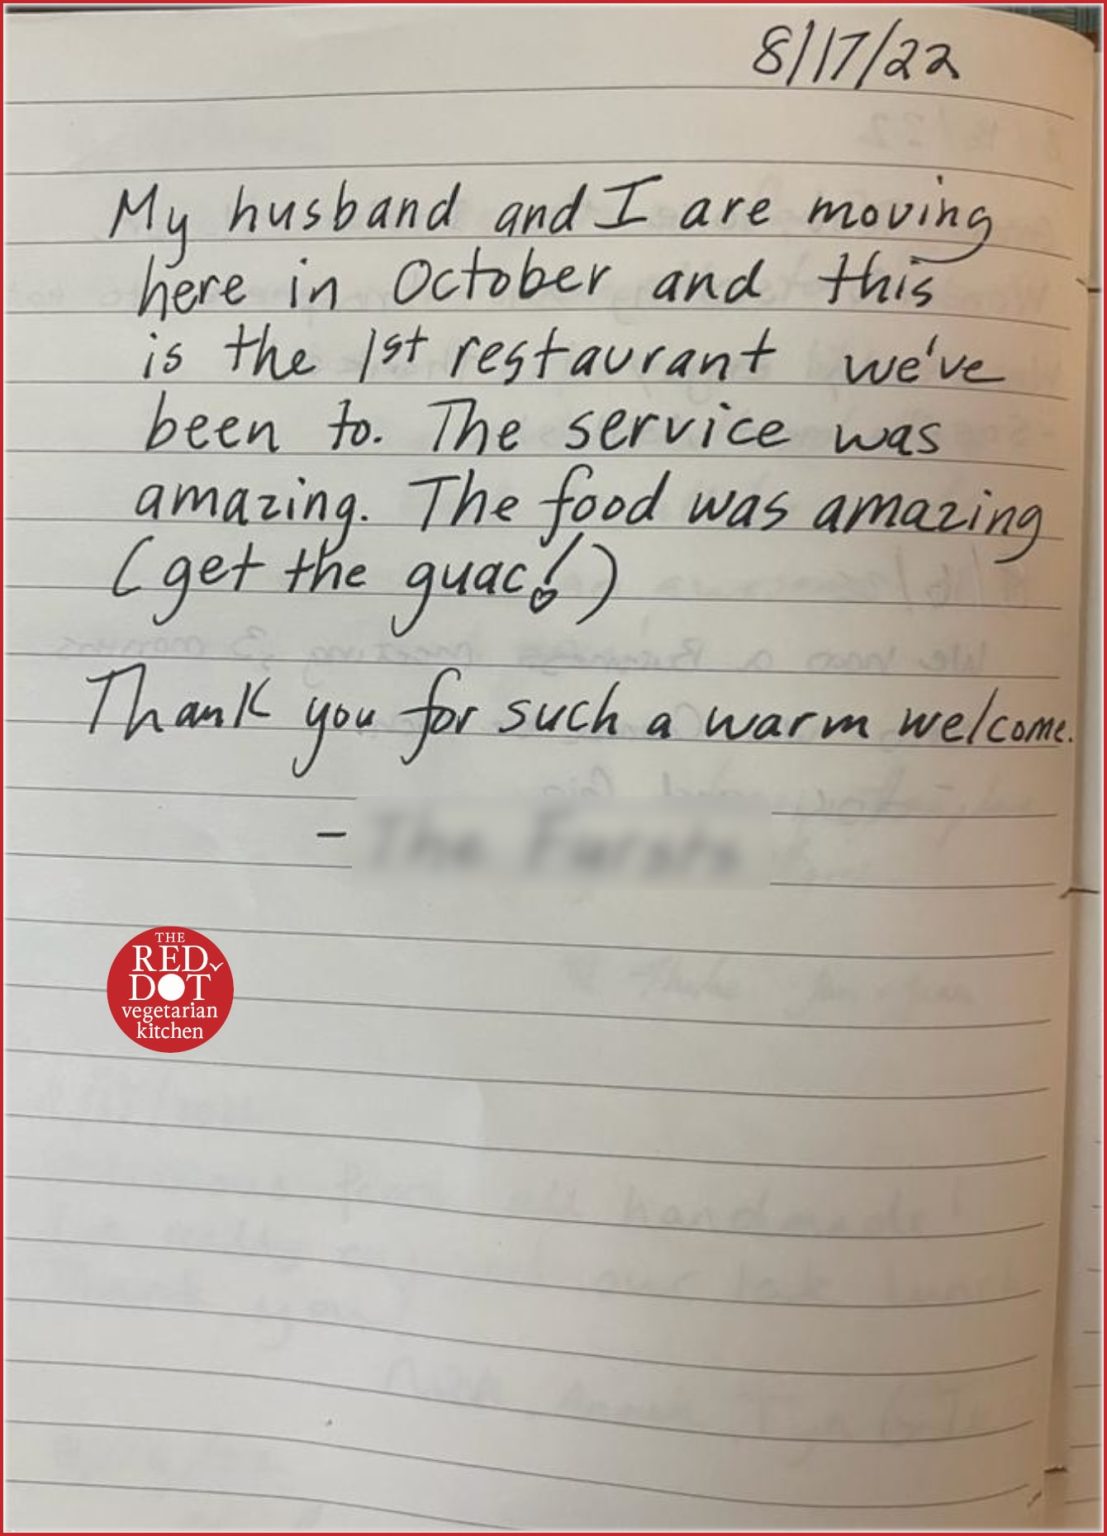 8/17/22
My husband and I are moving
here in October and this
is the 1st restaurant we've
been to. The service was
amazing. The food was amazing
(get the guac!)
Thank you for such a warm welcome.
-
THE
RED
DOT
vegetarian
kitchen